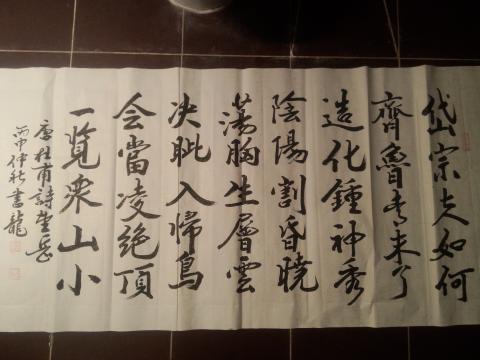 岱宗夫如何
齊魯青未了
造化鍾神秀
陰陽割昏曉
蕩胸生層雲
决眦入歸鳥
会當凌絶頂
一覧衆山小
唐杜甫詩望岳
丙申仲秋書龍